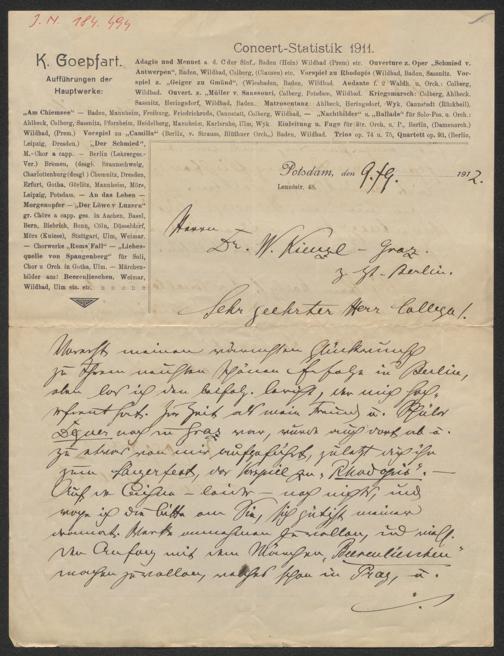 J. N. 184.494
Concert-Statistik 1911.
K. Goepfart.
Aufführungen der
Hauptwerke:
Adagio und Menuet a. d. C dur Sinf., Baden (Hein) Wildbad (Prem) etc. Ouverture z. Oper „Schmied v.
Antwerpen", Baden, Wildbad, Colberg, (Clauses) etc. Vorspiel zu Rhodopis (Wildbad, Baden, Sassnitz. Vor-
spiel z. „Geiger zu Gmünd", (Wiesbaden, Baden, Wildbad. Andante f. 2 Waldh. u. Orch.: Colberg,
Wildbad. Ouvert. z. „Müller v. Sanssouci, Colberg, Potsdam, Wildbad. Kriegsmarsch: Colberg, Ahlbeck,
Sassnitz, Heringsdorf, Wildbad, Baden. Matrosentanz: Ahlbeck, Heringsdorf, Wyk, Cannstadt (Rückbeil).
„Am Chiemsee" — Baden, Mannheim, Freiburg, Friedrichroda, Cannstatt, Colberg, Wildbad, — „Nachtbilder" u. „Ballade" für Solo-Pos. u. Orch.:
Ahlbeck, Colberg, Sassnitz, Pforzheim, Heidelberg, Mannheim, Karlsruhe, Ulm, Wyk. Einleitung u. Fuge für Str. Orch. u. P., Berlin, (Damenorch.)
Wildbad, (Prem.) Vorspiel zu „Camilla" (Berlin, v. Strauss, Blüthner Orch.), Baden, Wildbad. Trios op. 74 u. 75, Quartett op. 93, (Berlin,
Leipzig, Dresden.) „Der Schmied".
M.-Chor a capp. — Berlin (Lehrerges.-
Ver.) Bremen, (desgl. Braunschweig,
Charlottenburg (desgl) Chemnitz, Dresden,
Erfurt, Gotha, Görlitz, Mannheim, Mörs,
Leipzig, Potsdam. — An das Leben —
Morgenopfer — „Der Löwe v Luzern"
gr. Chöre a capp. ges. in Aachen, Basel,
Bern, Biebrich, Bonn, Cöln, Düsseldorf,
Mörs (Kaisec), Stuttgart, Ulm, Weimar.
— Chorwerke „Roms Fall" — „Liebes-
quelle von Spangenberg" für Soli,
Chor u Orch. in Gotha, Ulm. — Märchen-
bilder aus: Beerenlieschen, Weimar,
Wildbad, Ulm etc. etc.
Potsdam, den 9./9. 1912.
Lennéstr. 48.
Herrn
Dr. W. Kienzl — Graz.
z. Zt. Berlin.
Sehr geehrter Herr College!
Vorerst meinen wärmsten Glückwunsch
zu Ihrem neuesten schönen Erfolge in Berlin,
eben las ich den Bericht, der mich hoch-
erfreut hat. Zur Zeit als mein Freund u. Schüler
Degner noch in Graz war, wurde auch dort ab u.
zu etwas von mir aufgeführt, zuletzt
zum Sängerfest, das Vorspiel zu „Rhodopis". —
Auf der Bühne — leider — noch nichts, und
wage ich die Bitte an Sie, sich gütigst meiner
dramat. Werke annehmen zu wollen, und vielleicht
den Anfang mit dem Märchen „Beerenlieschen"
machen zu wollen, welches schon in Prag, u.